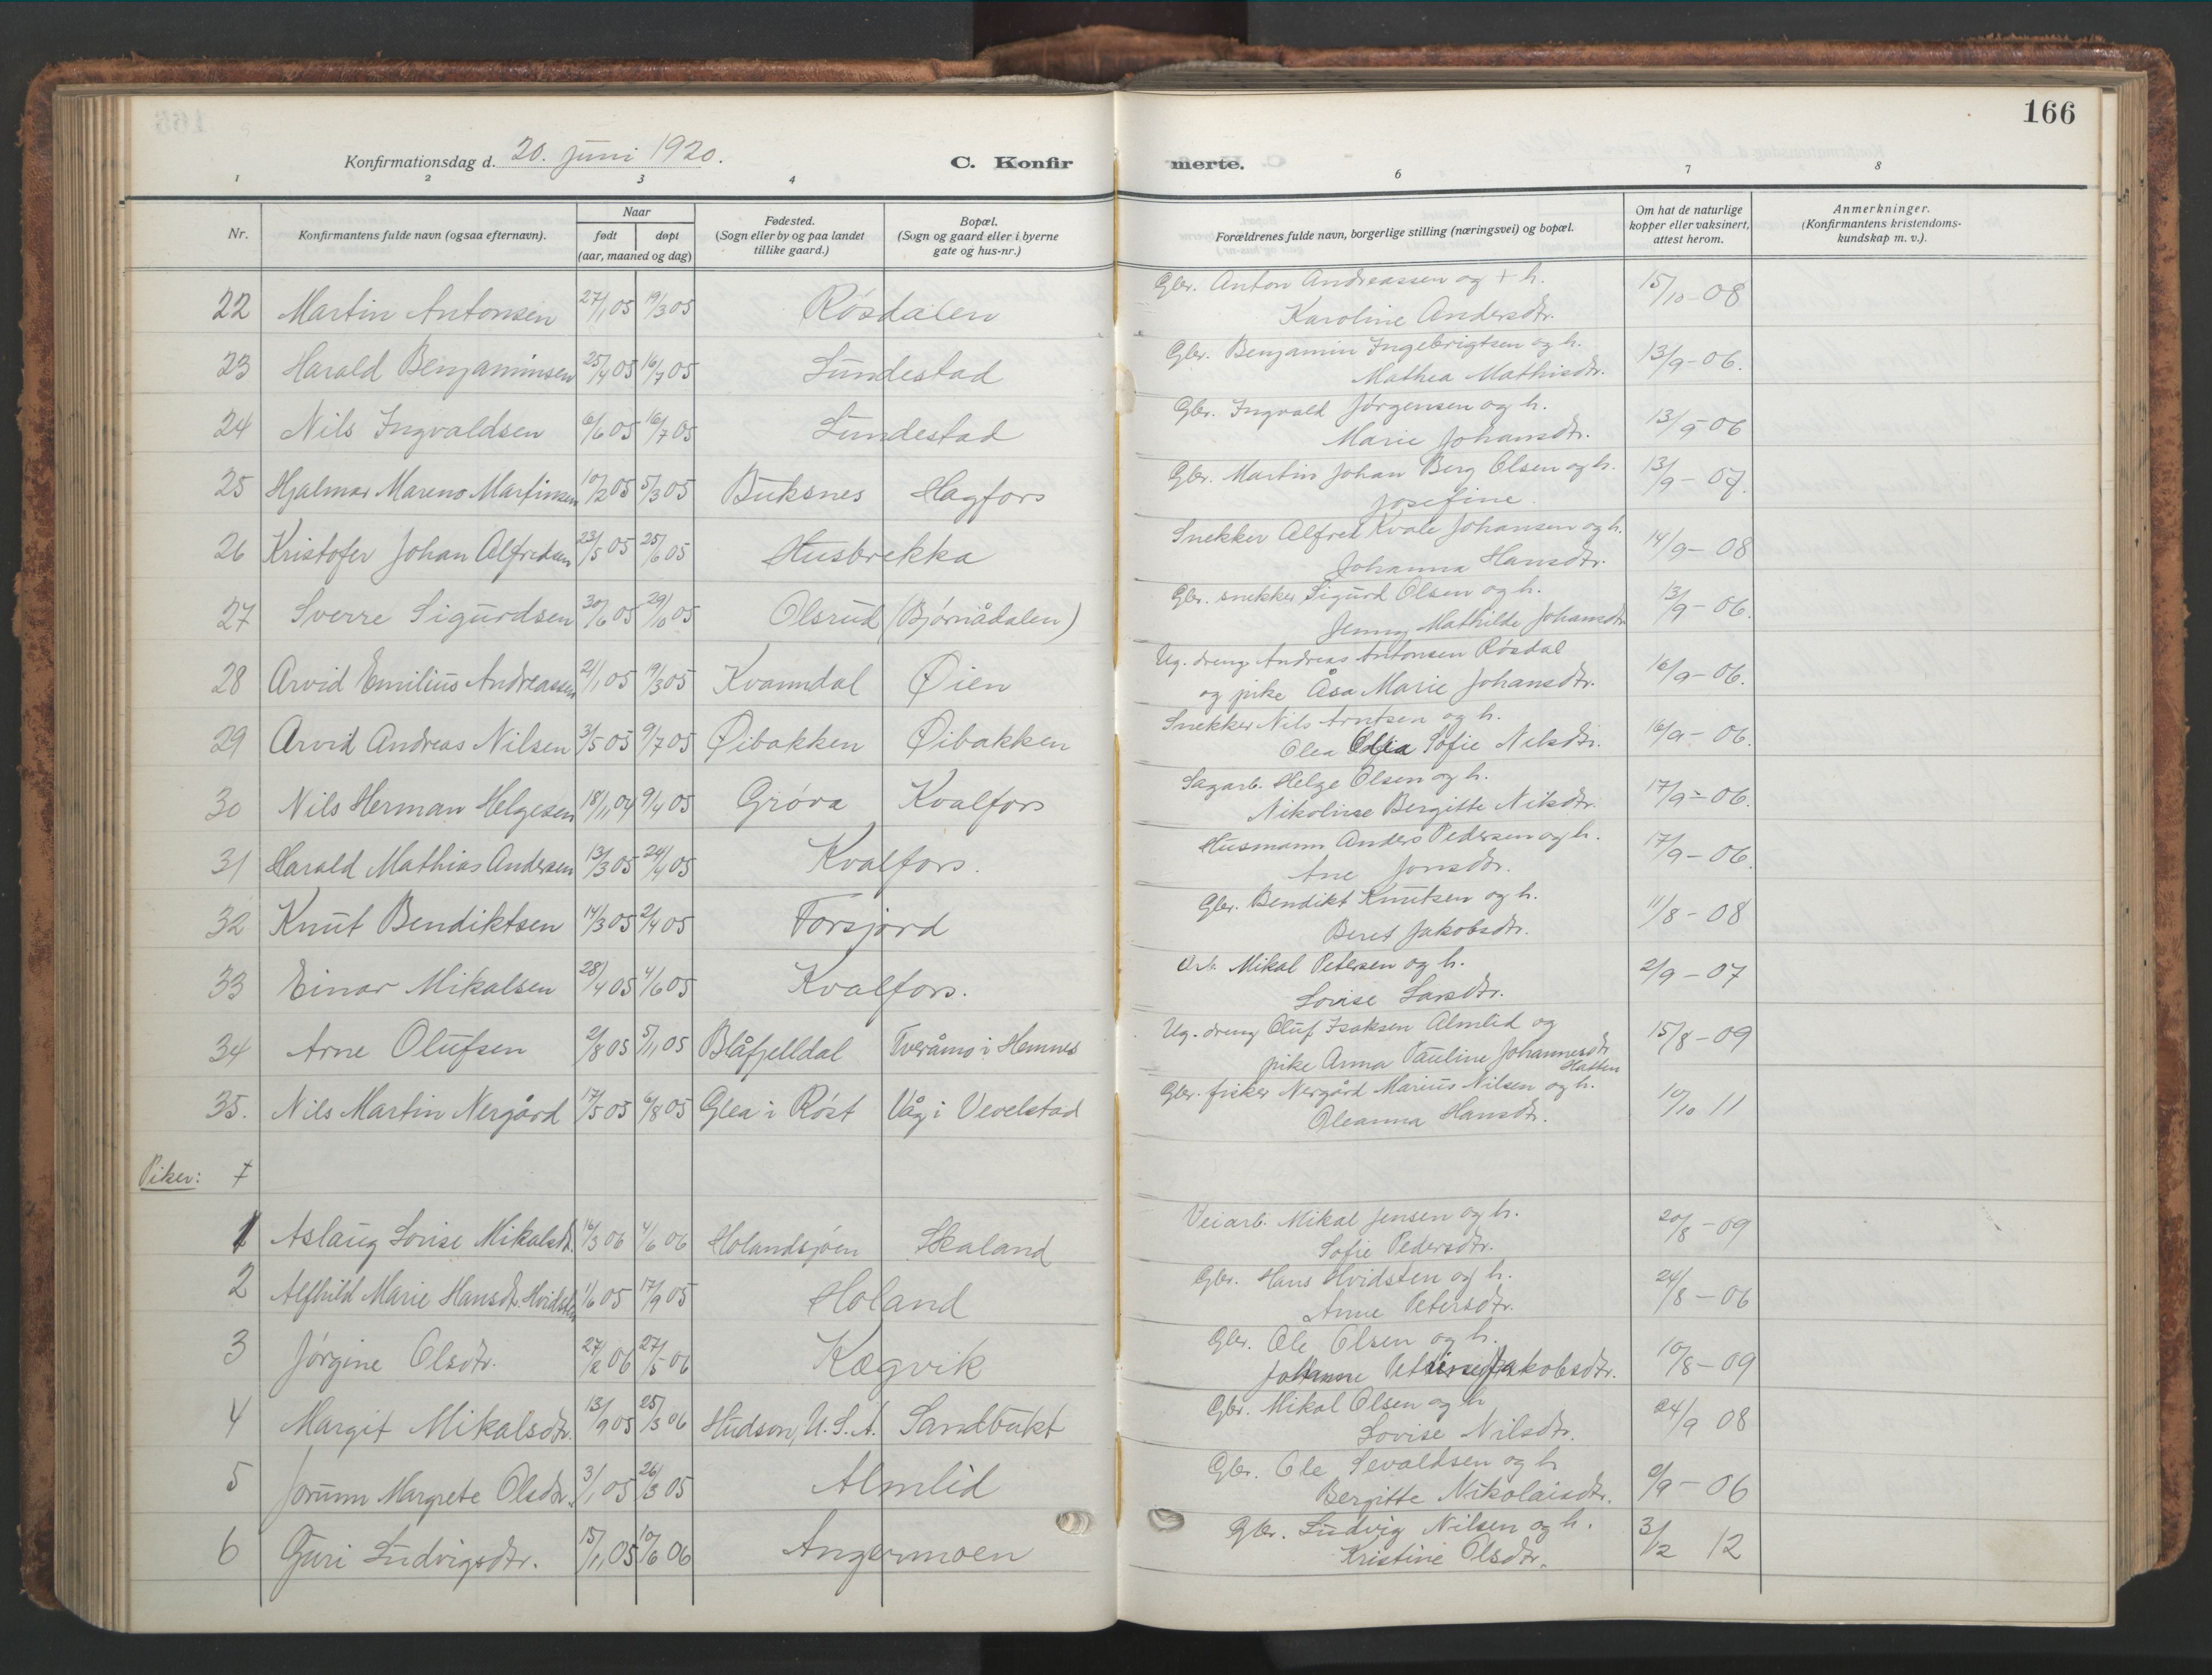 166
Konfirmationsdag d. 20. juni 1920.
C. Konfirmerte.
1 2 3 4 6 7 8
Nr.
Konfirmantens fulde navn (ogsaa efternavn).
Naar
født døpt
(aar, maaned og dag)
Fødested.
(Sogn eller by og paa landet
tillike gaard.)
Bopæl.
(Sogn og gaard eller i byerne
gate og hus-nr.)
Forældrenes fulde navn, borgerlige stilling (næringsvei) og bopæl.
Om hat de naturlige
kopper eller vaksinert,
attest herom.
Anmerkninger.
(Konfirmantens kristendoms-
kundskap m. v.).
22 Martin Antonsen 27/1 05 19/3 05 Røsdalen Gbr. Anton Andreassen og + h. 15/10-08
Karoline Andersdtr.
23 Harald Benjaminsen 25/4 05 16/7 05 Lundestad Gbr. Benjamin Ingebrigtsen og h. 13/9-06.
Mathea Mathisdtr.
24 Nils Ingvaldsen 6/6 05 16/7 05 Lundestad Gbr. Ingvald Jørgensen og h. 13/9-06
Marie Johansdtr.
25 Hjalmar Mareno Martinsen 10/2 05 5/3 05 Buksnes Hagfors Gbr. Martin Johan Berg Olsen og h. 13/9-07.
Josefine.
26 Kristofer Johan Alfredsen 23/5 05 25/6 05 Husbrekka Snekker Alfred Kvale Johansen og h. 14/9-08
Johanna Hansdtr.
27 Sverre Sigurdsen 30/6 05 29/10 05 Olsrud (Bjørnådalen) Gbr. snekker Sigurd Olsen og h. 13/9-06.
Jenny Mathilde Johansdtr
28 Arvid Emilius Andreassen 21/1 05 19/3 05 Kvanndal Øien Ug. dreng Andreas Antonsen Røsdal 16/9-06.
og pike Åsa Marie Johansdtr.
29 Arvid Andreas Nilsen 31/5 05 9/7 05 Øibakken Øibakken Snekker Nils Arntsen og h. 16/9-06.
Olea Sofie Nilsdtr.
30 Nils Herman Helgesen 18/11 04 9/4 05 Grøva Kvalfors Sagarb. Helge Olsen og h. 17/9-06.
Nikoline Bergitte Nilsdtr.
31 Harald Mathias Andersen 13/3 05 24/4 05 Kvalfors. Husmann Anders Pedersen og h. 17/9-06.
Ane Jonsdtr.
32 Knut Bendiktsen 14/3 05 2/4 05 Forsjord Gbr. Bendikt Knutsen og h. 11/8-08
Beret Jakobsdtr.
33 Einar Mikalsen 28/4 05 4/6 05 Kvalfors. Mikal Petersen og h. 2/9-07
Lovise Larsdtr.
34 Arne Olufsen 2/8 05 5/11 05 Blåfjelldal Tveråmo i Hemnes Ug. dreng Oluf Isaksen Almlid og 15/8-09
pike Anna Pauline Johannesdtr
Hatten
35. Nils Martin Nergård 17/5 05 6/8 05 Glea i Røst Våg i Vevelstad Gbr. fisker Nergård Marius Nilsen og h. 10/10 11
Oleanna Hansdtr.
Piker: +
1 Aslaug Lovise Mikalsdt. 16/3 06 4/6 06 Holandsjøen Skaland Veiarb. Mikal Jensen og h. 20/8-09
Sofie Pedersdtr.
2 Alfhild Marie Hansdt. Hvidsten 1/6 05 17/9 05 Holand Gbr. Hans Hvidsten og h. 24/8-06
Anne Petersdtr.
3 Jørgine Olsdtr. 27/2 06 27/5 06 Kægvik Gbr. Ole Olsen og h. 10/8-09
Johanne Petrine Jakobsdtr.
4 Margit Mikalsdtr. 13/9 05 25/3 06 Hudson, U.S.A. Sandbukt Gbr. Mikal Olsen og h 24/9 08
Lovise Nilsdtr.
5 Jorunn Margrete Olsdtr. 3/1 05 26/3 05 Almlid Gbr. Ole Sevaldsen og h /9-06
Bergitte Nikolaisdtr.
6 Guri Ludvigsdtr. 15/11 05 10/6 06 Angermoen Gbr. Ludvig Nilsen og h. 3/2 12
Kristine Olsdtr.